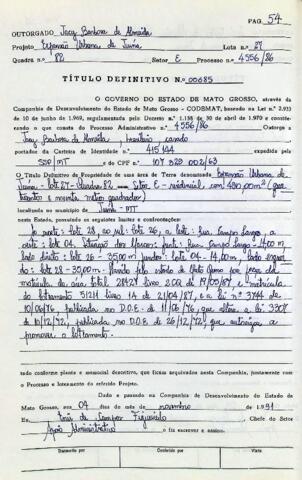 PAG. 54
OUTORGADO Jacy Barbosa de Almeida
Projeto Expansão Urbana de Juína Lote n.º 27
Quadra n.º 82 Setor E Processo n.º 4556/86
TÍTULO DEFINITIVO N.º 00685
O GOVERNO DO ESTADO DE MATO GROSSO, através da
Companhia de Desenvolvimento do Estado de Mato Grosso - CODEMAT, baseando na Lei n.º 2.933
de 10 de junho de 1969, regulamentada pelo Decreto n.º 1.138 de 30 de abril de 1970 e considerando
o que consta do Processo Administrativo n.º 4556/86 Outorga a
Jacy Barbosa de Almeida, brasileiro, casado
portador da Carteira de Identidade n.º 415144 expedida pela
SSP/MT e do CPF n.º 107 329 002/63
O Título Definitivo de Propriedade de uma área de Terra denominada Expansão Urbana de
Juína - lote 27 - Quadra 82 - Setor E - residencial, com 490,00m² (quatrocentos
e noventa metros quadrados)
localizada no município de Juína - MT
neste Estado, possuindo os seguintes limites e confrontações:
ao norte: lote 28, ao sul: lote 26, a leste: Rua Campo Largo, a
oeste: lote 04. frente: Rua Campo Largo - 14,00 m,
lado direito: lote 26 - 35,00 m fundos: lote 04 - 14,00m, lado esquerdo:
lote 28 - 35,00m.
matrícula da área total 28427 livro 2 de 19/05/87 e matrícula
do loteamento 51211 livro 14 de 21/04/87, e a lei nº 3744 de
10/06/76, publicada no D.O.E. de 11/06/76, que altera a lei 3307
de 18/12/72, publicada no D.O.E. de 26/12/72, que autoriza a
promover o loteamento.
tudo conforme planta e memorial descritivo, que ficam arquivados nesta Companhia, juntamente com
o Processo e Loteamento do referido Projeto.
Dado e passado na Companhia de Desenvolvimento do Estado de
Mato Grosso, aos 04 dias do mês de novembro de 1991
Eu, de Campos Figueiredo, Chefe do Setor
Apoio Administrativo o fiz escrever e assino.
Datilografado por Conferido por Visto